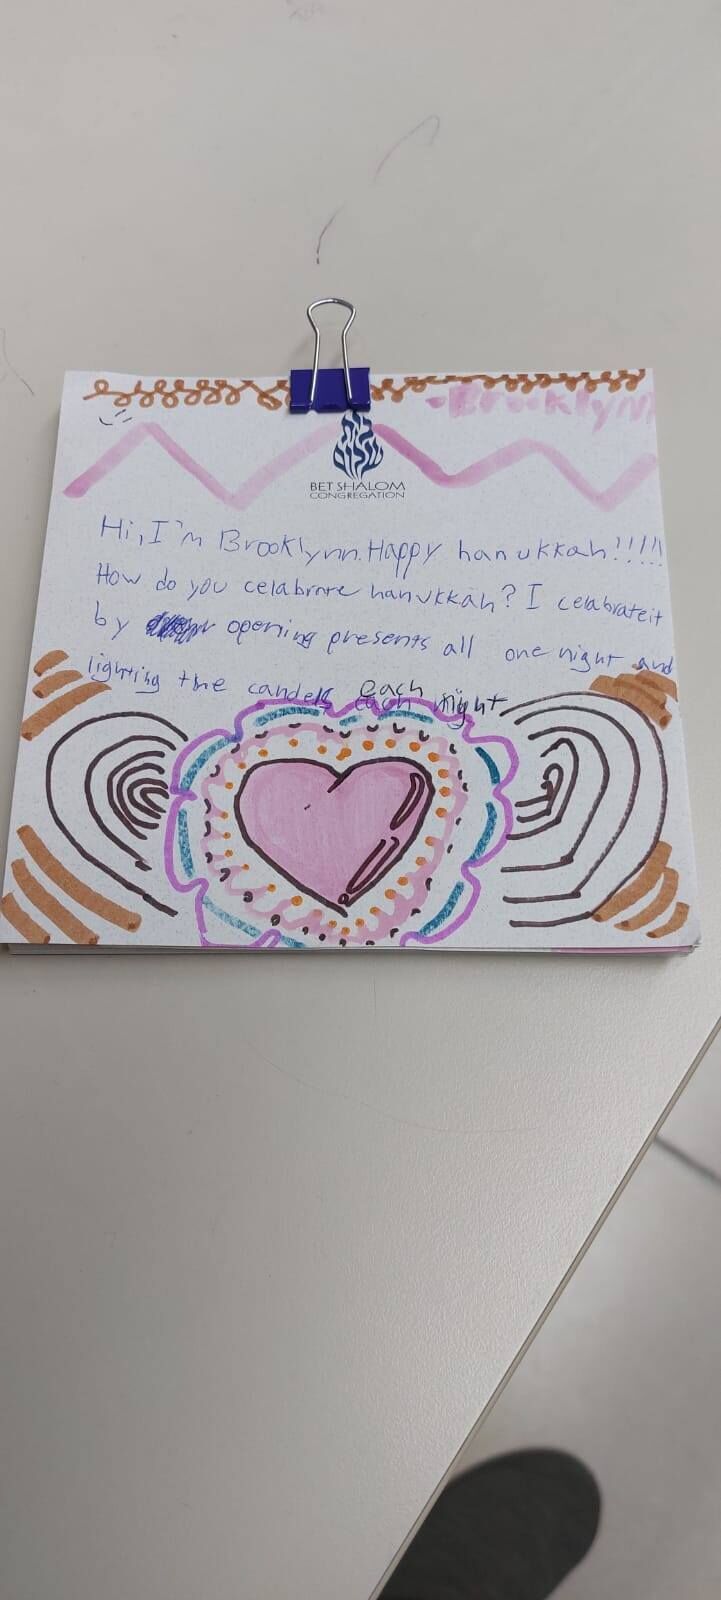 Brooklynn
BET SHALOM
CONGREGATION
Hi, I'm Brooklynn. Happy hanukkah!!!!!
How do you celabrate hanukkah? I celabrate it
by opening presents all one night and
lighting the candels each night
each